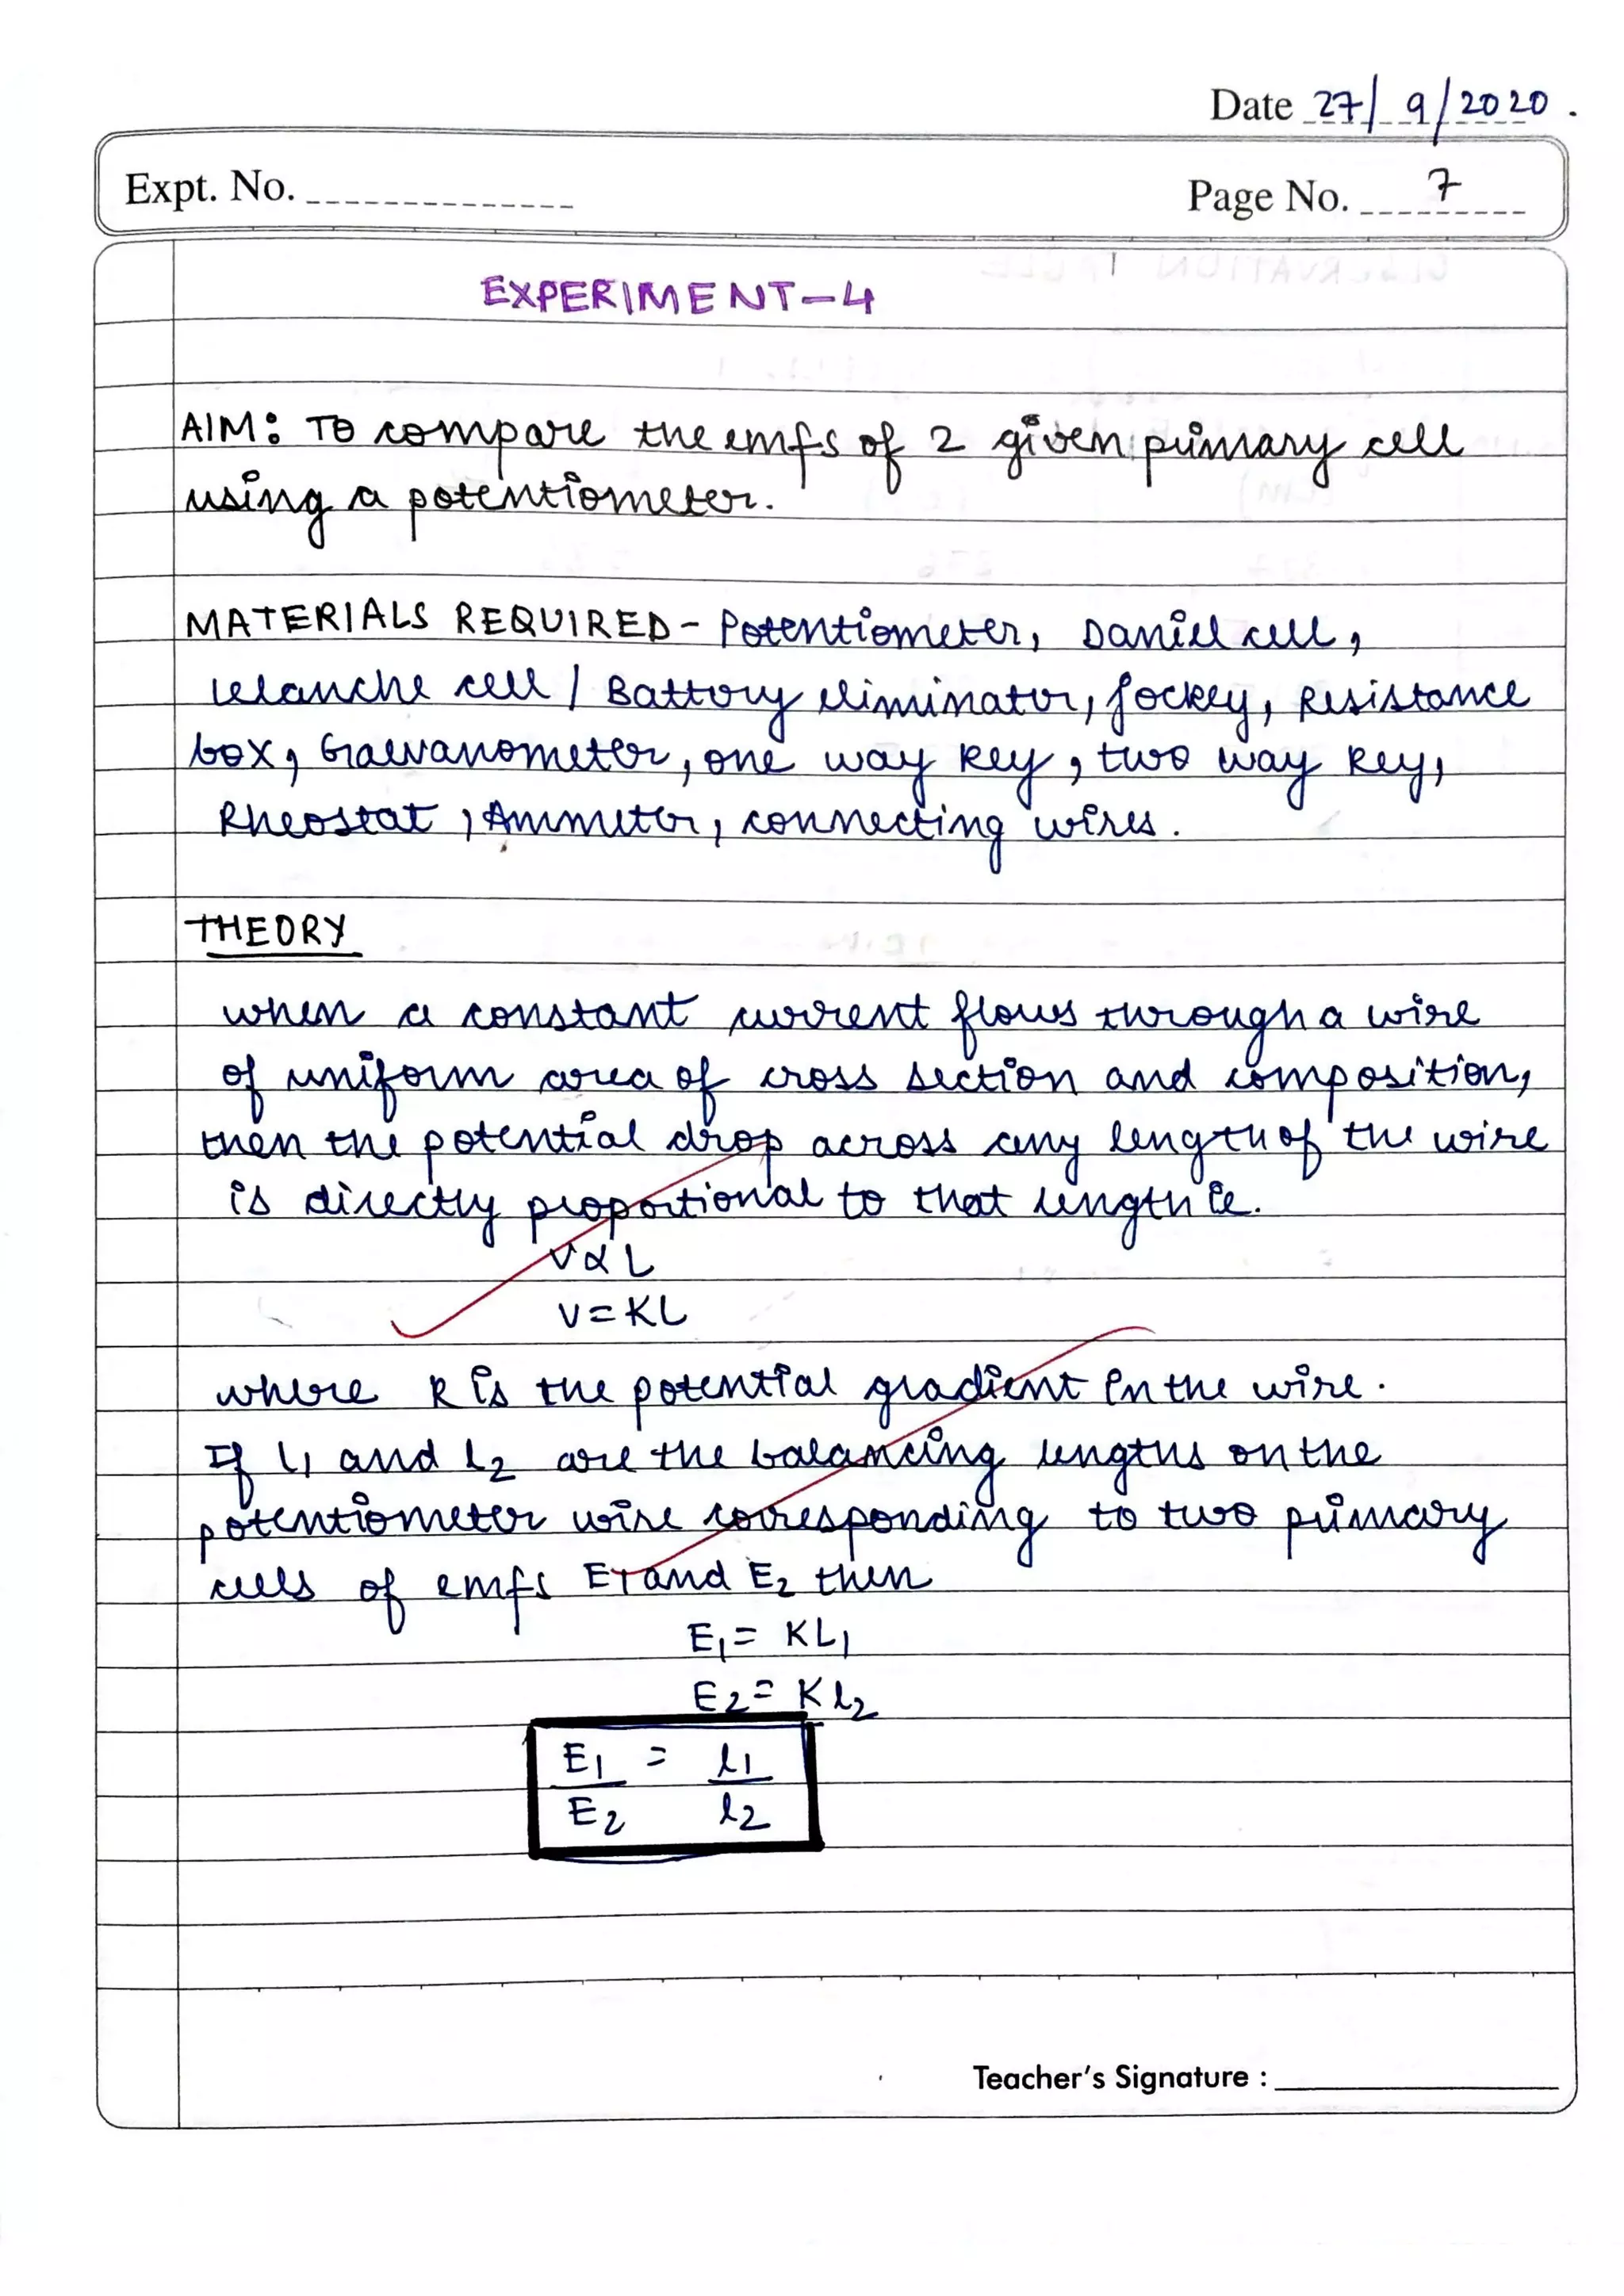 Date 27/9/2020.
Expt. No.
Page No. 7
EXPERIMENT-4
AIM: To compare the emfs of 2 given primary cell
using a potentiometer.
MATERIALS REQUIRED - Potentiometer, Daniell cell,
lelanche cell / Battory eliminator, Jockey, Resistance
box, Galvanometer, one way key, two way key,
Rheostat, Ammeter, connecting wires.
THEORY
when a constant current flows through a wire
of uniform area of cross section and composition,
then the potential drop across any length of the wire
is directly proportional to that length ie.
V∝L
V=KL
where K is the potential gradient in the wire.
If l₁ and l₂ are the balancing lengths on the
potentiometer wire corresponding to two primary
cells of emfs E1 and E₂ then
E₁= KL₁
E₂= Kl₂
E₁ = l₁
E₂ l₂
Teacher's Signature :